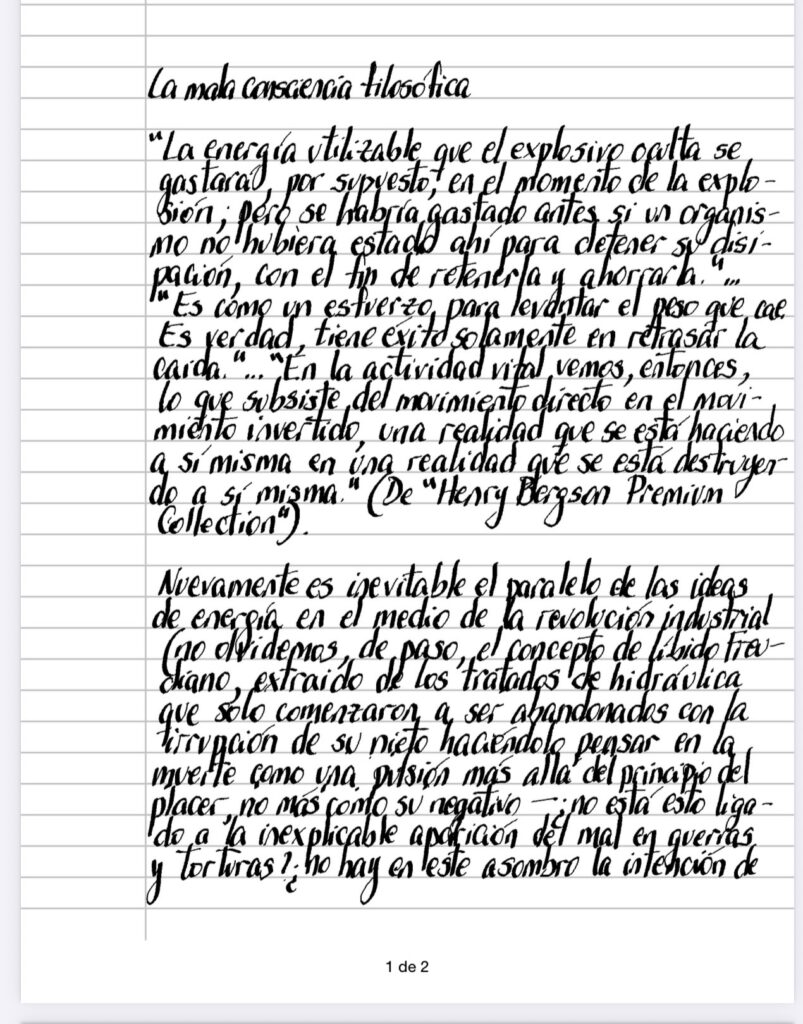 La mala consciencia filosófica
"La energía utilizable que el explosivo oculta se
gastará, por supuesto, en el momento de la explo-
sión; pero se habría gastado antes si un organis-
mo no hubiera estado ahí para detener su disi-
pación, con el fin de retenerla y ahorrarla."...
"Es como un esfuerzo para levantar el peso que cae.
Es verdad, tiene éxito solamente en retrasar la
caída."..."En la actividad vital vemos, entonces,
lo que subsiste del movimiento directo en el movi-
miento invertido, una realidad que se está haciendo
a sí misma en una realidad que se está destruyen-
do a sí misma." (De "Henry Bergson Premium
Collection").
Nuevamente es inevitable el paralelo de las ideas
de energía en el medio de la revolución industrial
(no olvidemos, de paso, el concepto de líbido Freu-
diano, extraido de los tratados de hidráulica
que sólo comenzaron a ser abandonados con la
irrupción de su nieto haciéndolo pensar en la
muerte como una pulsión más allá del principio del
placer, no más como su negativo —¿no está esto liga-
do a la inexplicable aparición del mal en guerras
y torturas?¿no hay en este asombro la intención de
1 de 2